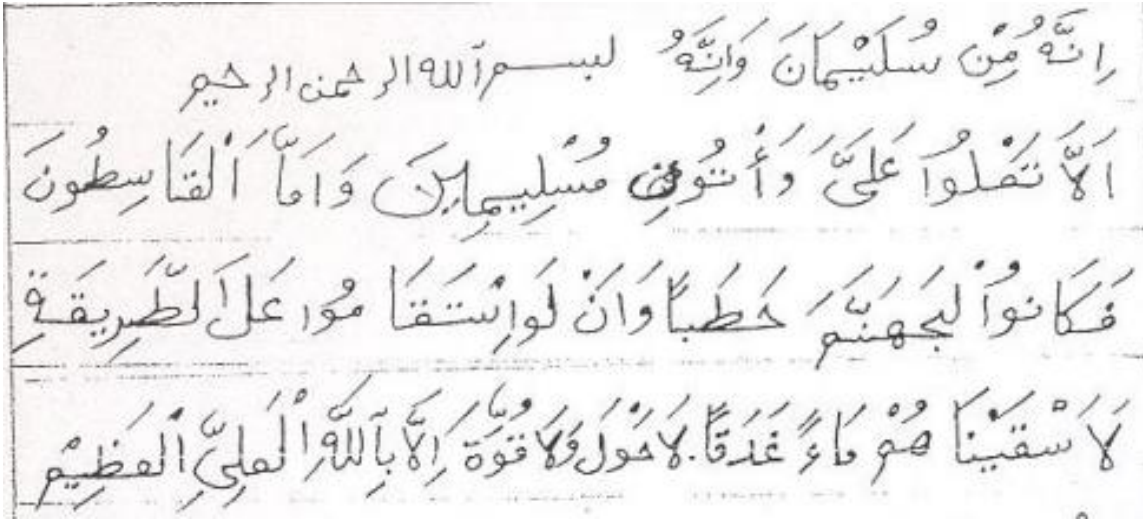 اِنَّهُ مِنْ سُلَيْمَانَ وَاِنَّهُ لبســم ٱلله الرحمن الرحيم
اَلَّا تَعْلُوا عَلَىَّ وَأْتُونِ مُسْلِيمِينَ وَاَمَّا اَلْقَاسِطُونَ
فَكَانُوْا لِجَهَنَّمَ حَطَبًا وَاَنْ لَوِاسْتَقَامُوا عَلَ الطَّرِيقَةِ
لَاَسْقَيْنَا هُمْ مَاءً غَدَقًا. لَاحَوْلَ وَلَا قُوَّةَ اِلَّا بِٱللَّهِ الْعَلِىِّ الْعَظِيْمْ